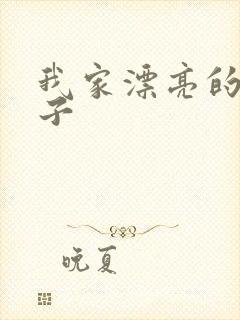 我家漂亮的
子
晚夏